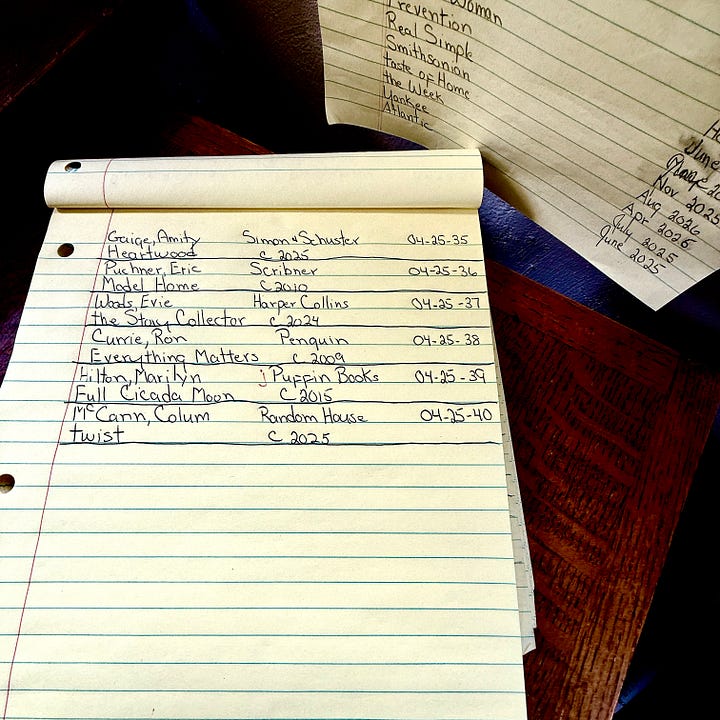 Woman
Prevention
Real Simple
Smithsonian
taste of Home
the Week
Yankee
Atlantic
June
Nov 2025
Aug 2026
Apr 2026
July 2025
June 2025
Gaige, Amity Simon & Schuster 04-25-35
Heartwood c 2025
Puchner, Eric Scribner 04-25-36
Model Home c 2010
Woods, Evie Harper Collins 04-25-37
the Story Collector c 2024
Currie, Ron Penguin 04-25-38
Everything Matters c 2009
Hilton, Marilyn j Puffin Books 04-25-39
Full Cicada Moon C 2015
McCann, Colum Random House 04-25-40
twist c 2025